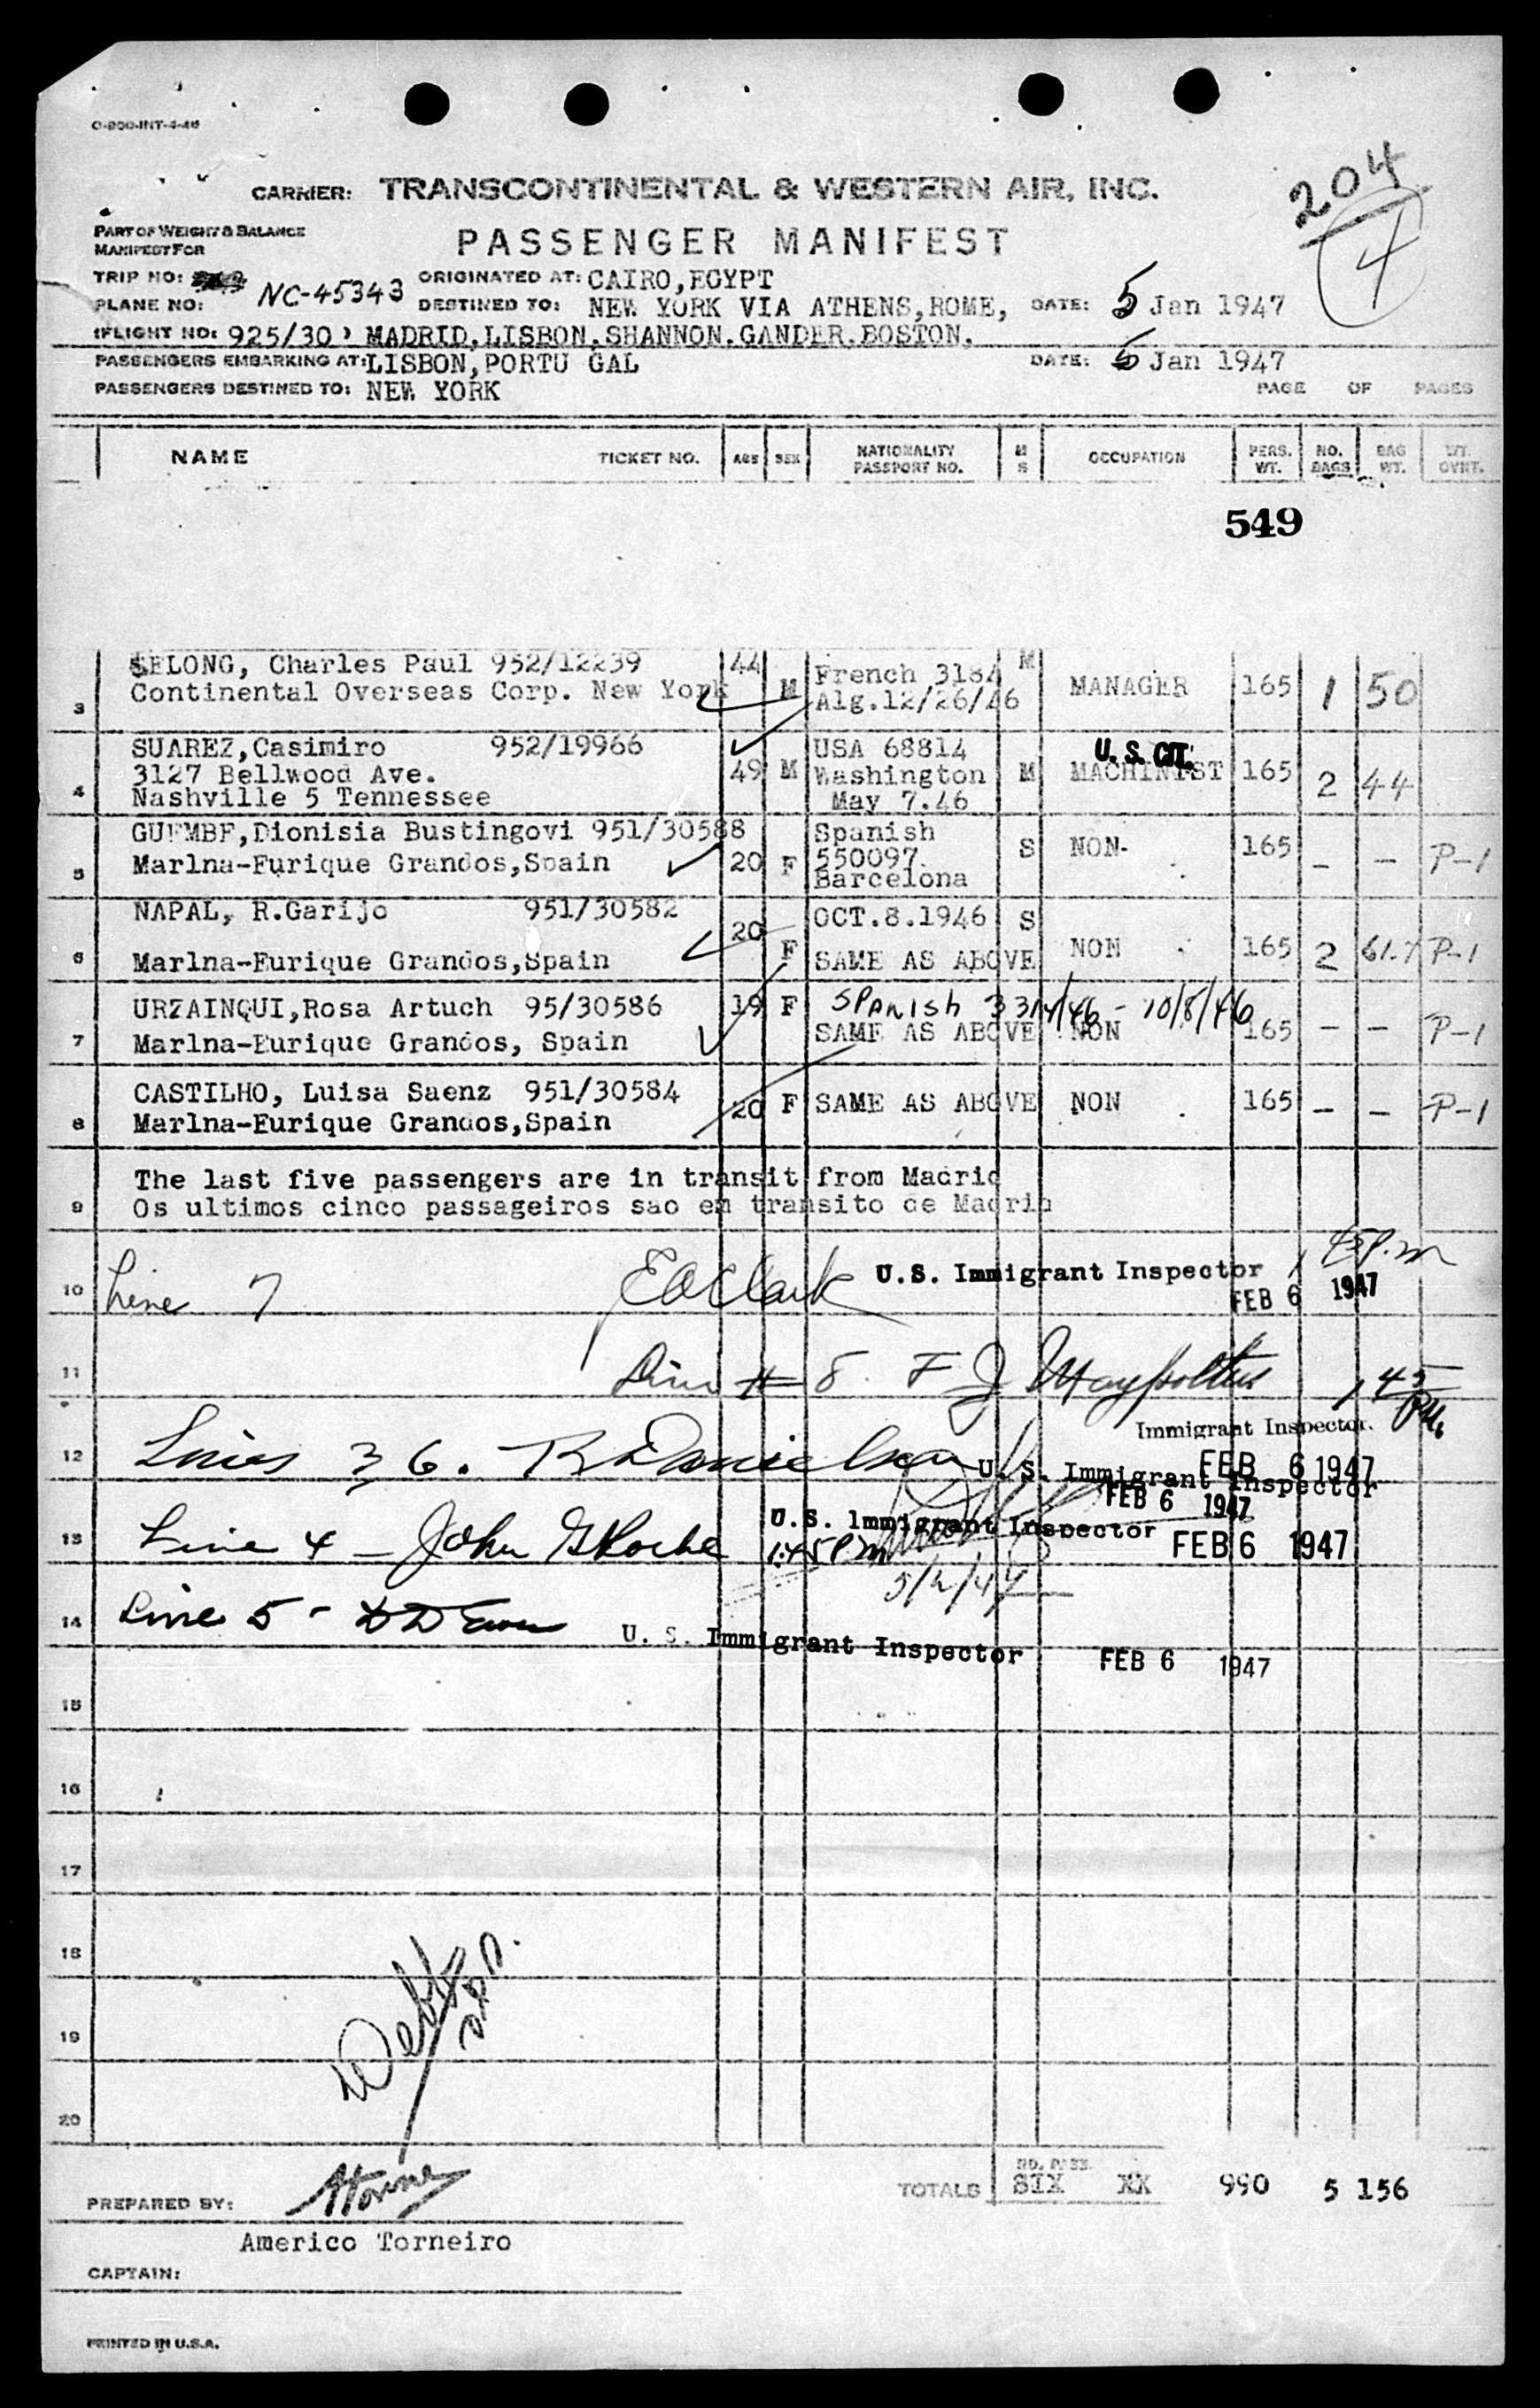 O-800-INT-4-46
204
4
CARRIER: TRANSCONTINENTAL & WESTERN AIR, INC.
PART OF WEIGHT & BALANCE
MANIFEST FOR
PASSENGER MANIFEST
TRIP NO: NC-45343 ORIGINATED AT: CAIRO,EGYPT
PLANE NO: DESTINED TO: NEW YORK VIA ATHENS,ROME, DATE: 5 Jan 1947
(FLIGHT NO: 925/30) MADRID,LISBON,SHANNON,GANDER,BOSTON.
PASSENGERS EMBARKING AT: LISBON,PORTU GAL DATE: 6 Jan 1947
PASSENGERS DESTINED TO: NEW YORK PAGE OF PAGES
NAME TICKET NO. AGE SEX NATIONALITY PASSPORT NO. M S OCCUPATION PERS. WT. NO. BAGS BAG WT. WT. OVHT.
549
3 Charles Paul 952/12239 44 M French 3184 M MANAGER 165 1 50
Continental Overseas Corp. New York Alg.12/26/46
4 SUAREZ,Casimiro 952/19966 49 M USA 68814 M MACHINIST 165 2 44
U.S. CIT.
3127 Bellwood Ave. Washington
Nashville 5 Tennessee May 7.46
5 GUEMBE,Dionisia Bustingovi 951/30588 20 F Spanish S NON- 165 - - P-1
Marlna-Eurique Grandos,Spain 550097.
Barcelona
6 NAPAL, R.Garijo 951/30582 20 F OCT.8.1946 S NON 165 2 61.7 P-1
Marlna-Eurique Grandos,Spain SAME AS ABOVE
7 URZAINQUI,Rosa Artuch 95/30586 19 F SPANISH 3314/46 - 10/8/46
Marlna-Eurique Grandos, Spain SAME AS ABOVE NON 165 - - P-1
8 CASTILHO, Luisa Saenz 951/30584 20 F SAME AS ABOVE NON 165 - - P-1
Marlna-Eurique Grandos,Spain
9 The last five passengers are in transit from Madrid
Os ultimos cinco passageiros sao em transito de Madrid
10 Line 7 E A Clark U.S. Immigrant Inspector 1 45 P.m
FEB 6 1947
11 Line # 8. F J 1 45 PM.
Immigrant Inspector.
12 Lines 3 6. R Danielson U. S. Immigrant Inspector
FEB 6 1947
FEB 6 1947
13 Line 4 - John G Roche 1:45 P m U.S. Immigrant Inspector FEB 6 1947
14 Line 5 - U. S. Immigrant Inspector FEB 6 1947
15
16
17
18
19
20
TOTALS NO. PASS. SIX XX 990 5 156
PREPARED BY:
Americo Torneiro
CAPTAIN:
PRINTED IN U.S.A.